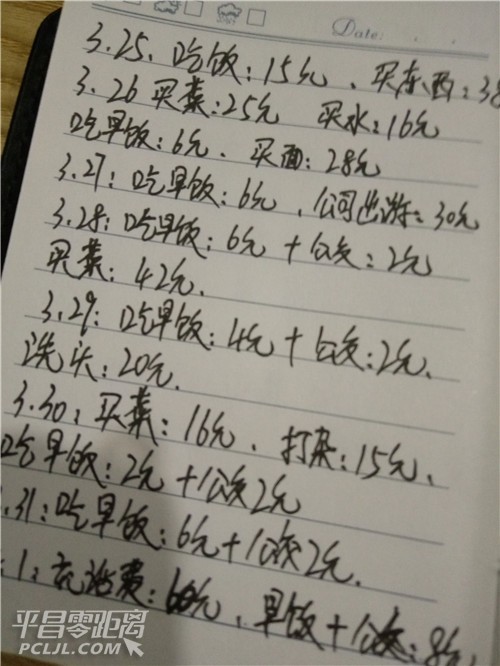 Date:
3.25. 吃饭:15元、买东西:38
3.26 买菜:25元 买水:16元
吃早饭:6元、买面:28元
3.27:吃早饭:6元、公司出游:30元
3.28:吃早饭:6元+公交:2元
买菜:42元.
3.29:吃早饭:4元+公交:2元、
洗头:20元.
3.30:买菜:16元、打杂:15元、
吃早饭:2元+公交2元
.31:吃早饭:6元+公交2元.
.1:充话费:元、早饭+公交:8元
平昌零距离
PCLJL.COM